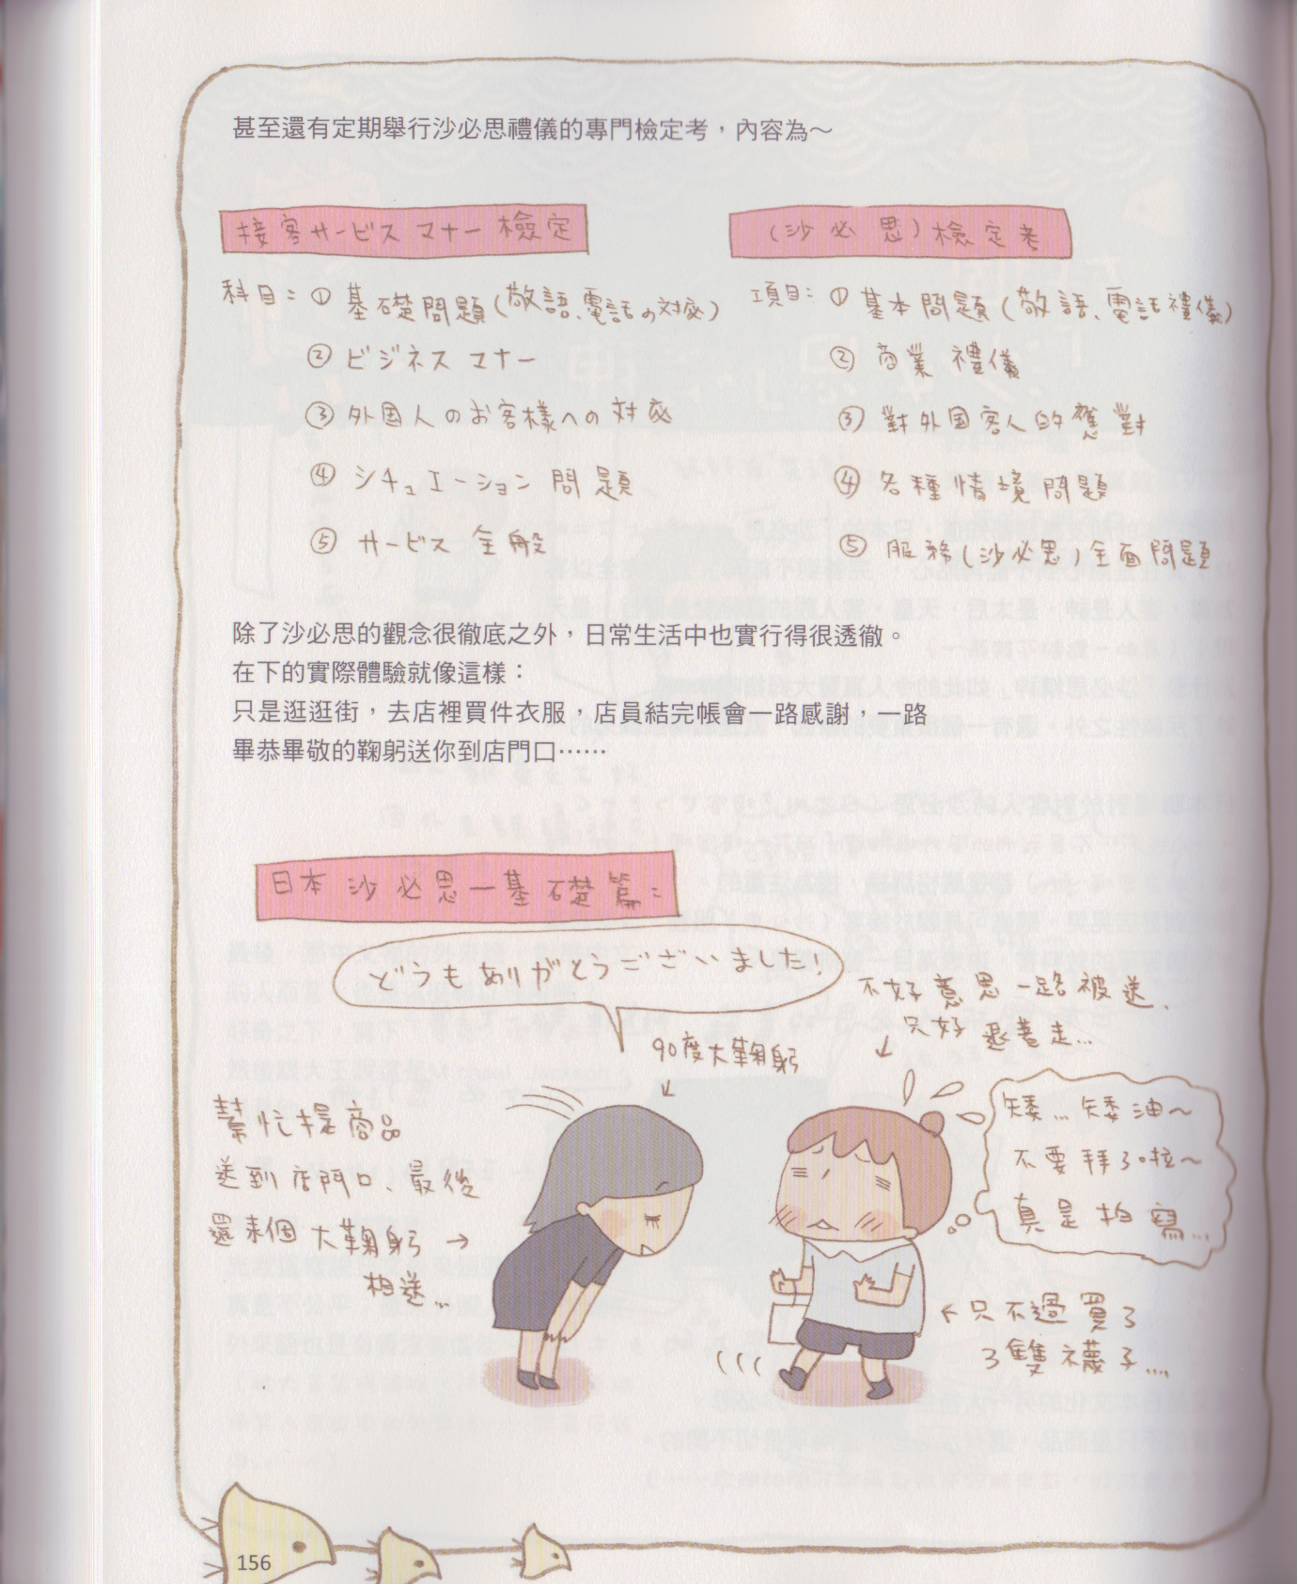 甚至還有定期舉行沙必思禮儀的專門檢定考，內容為～
接客サービスマナー檢定
科目：① 基礎問題（敬語、電話の対応）
② ビジネスマナー
③ 外国人のお客様への対応
④ シチュエーション問題
⑤ サービス全般
（沙必思）檢定考
項目：① 基本問題（敬語、電話禮儀）
② 商業禮儀
③ 對外国客人的應對
④ 各種情境問題
⑤ 服務（沙必思）全面問題
除了沙必思的觀念很徹底之外，日常生活中也實行得很透徹。
在下的實際體驗就像這樣：
只是逛逛街，去店裡買件衣服，店員結完帳會一路感謝，一路
畢恭畢敬的鞠躬送你到店門口……
日本沙必思—基礎篇：
どうもありがとうございました！
90度大鞠躬
↓
不好意思一路被送、
只好退著走…
↙
幫忙提商品
送到店門口、最後
還來個大鞠躬 →
相送…
矮…矮油～
不要拜了啦～
真是拍寫…
← 只不過買了
3雙襪子…
156